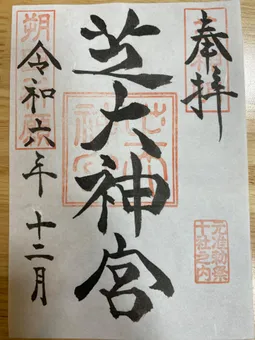 奉拝
芝大神宮
令和六年十二月
元准勅祭
十社之内